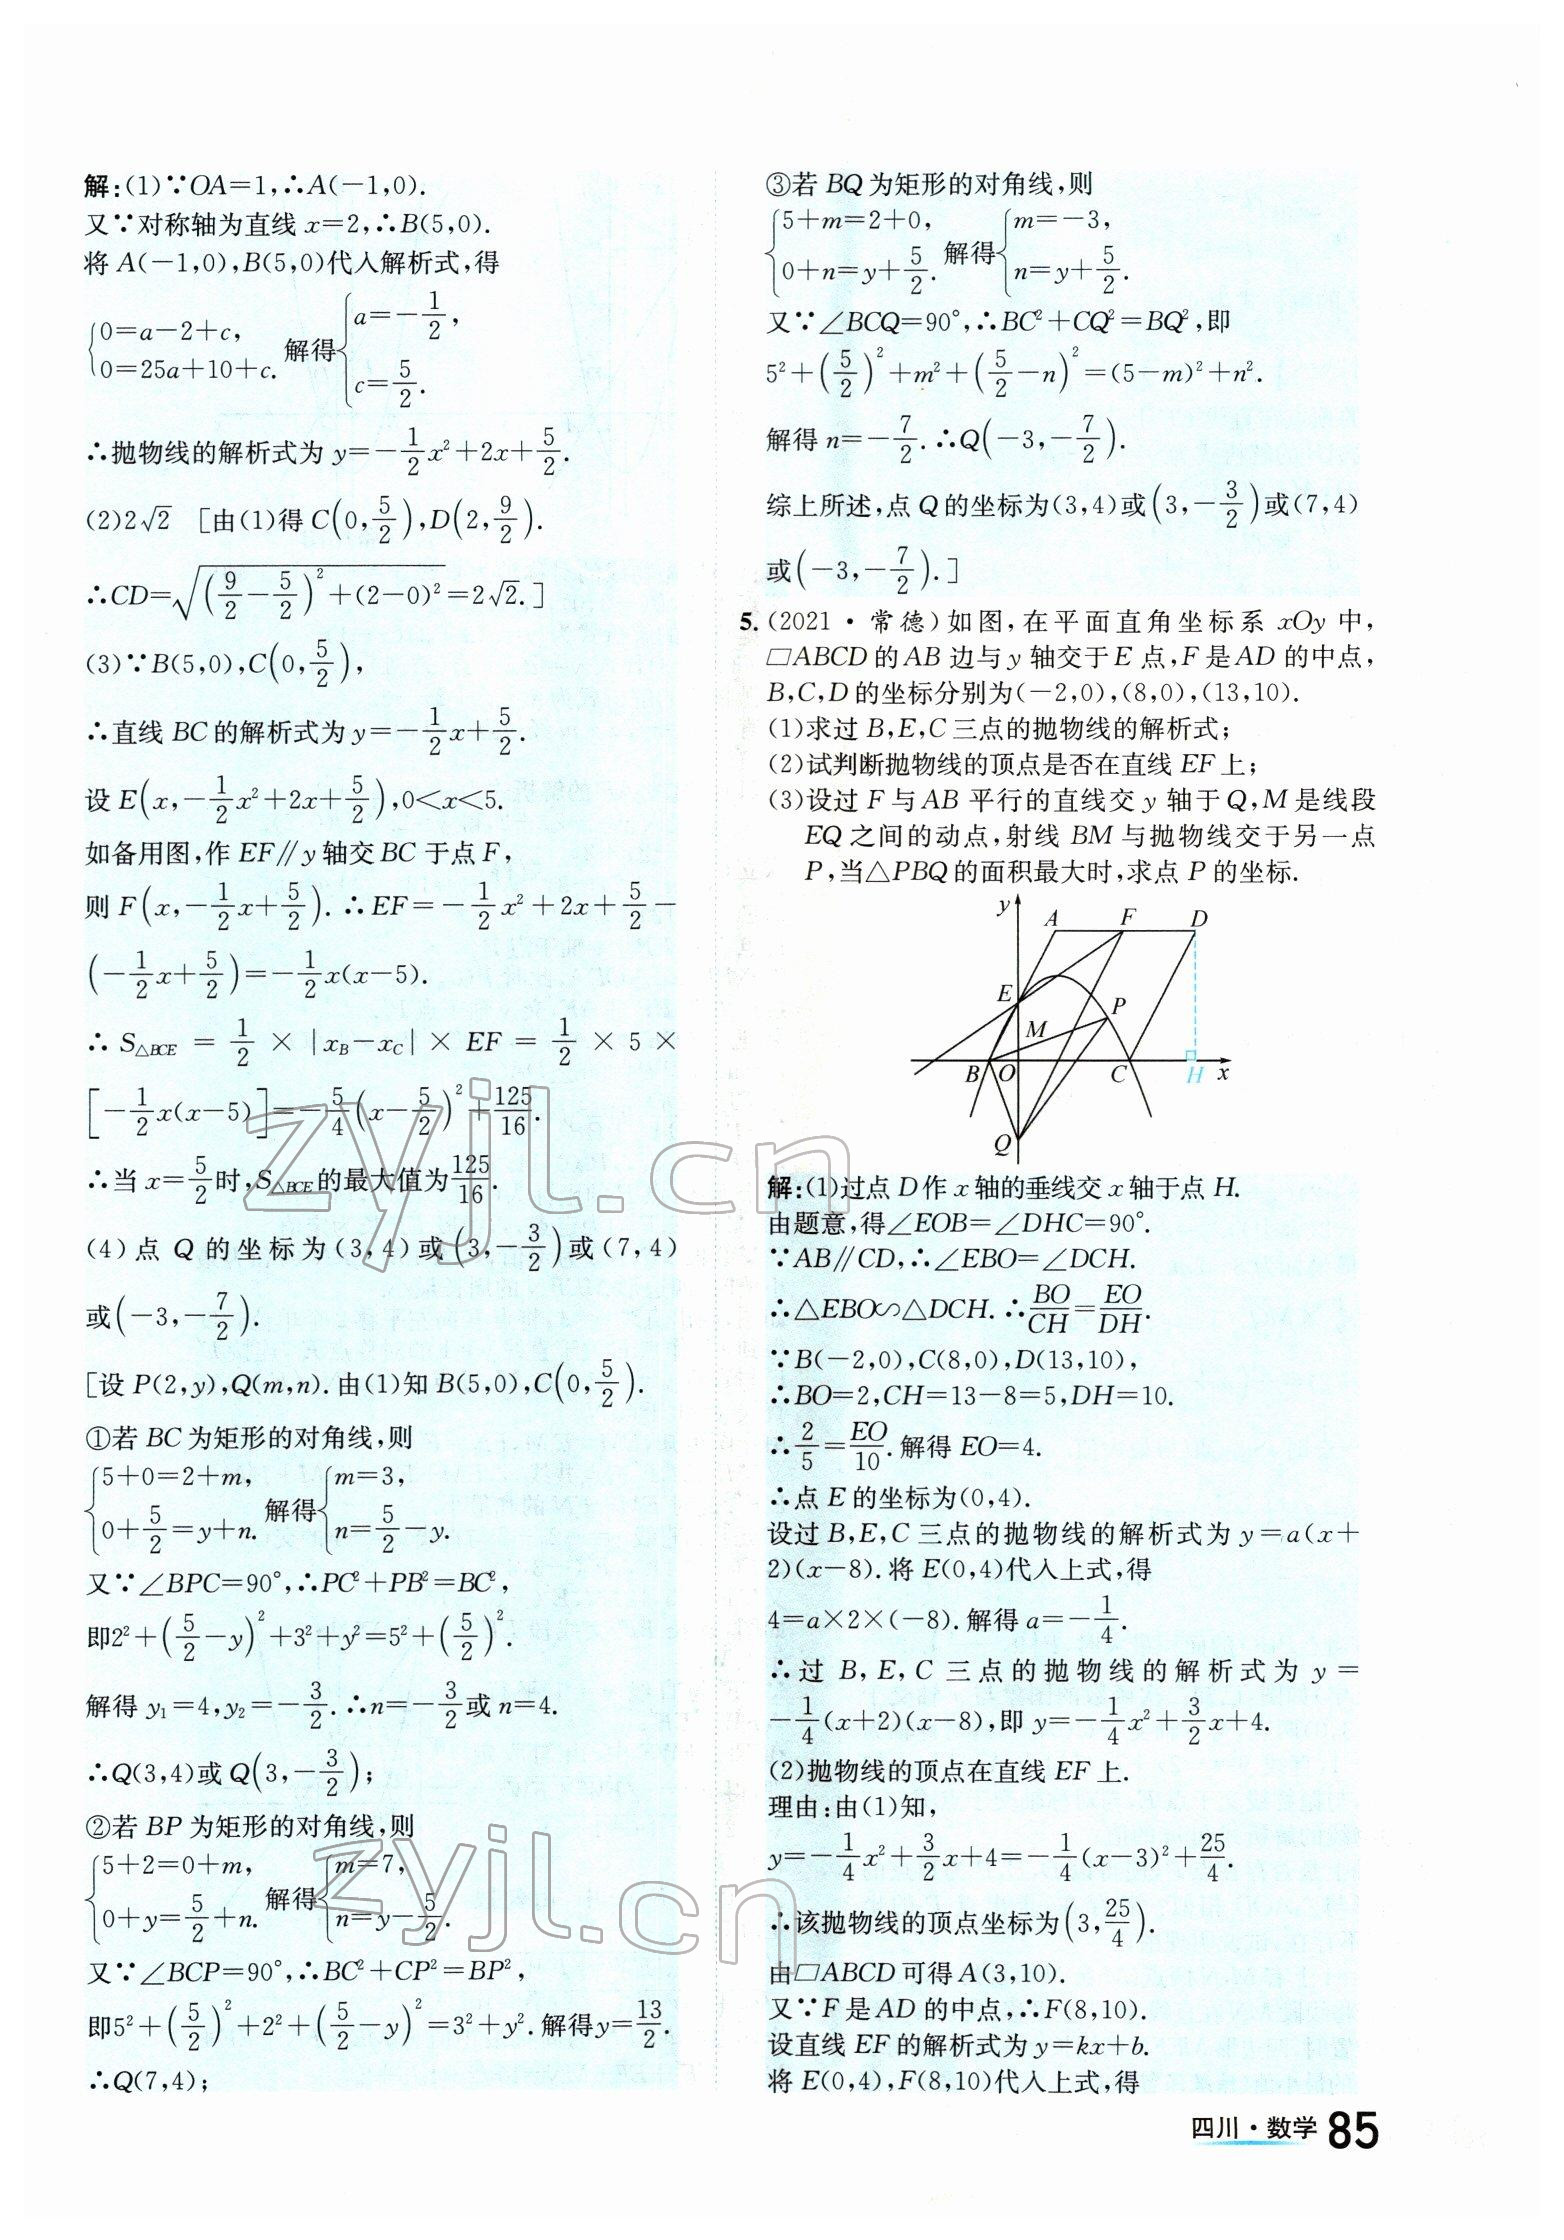 解:(1)∵OA=1,∴A(-1,0).
又∵对称轴为直线 x=2,∴B(5,0).
将 A(-1,0),B(5,0)代入解析式,得
{0=a-2+c, 0=25a+10+c. 解得{a=-1/2, c=5/2.
∴抛物线的解析式为 y=-1/2x²+2x+5/2.
(2)2√2 [由(1)得 C(0,5/2),D(2,9/2).
∴CD=√((9/2-5/2)²+(2-0)²)=2√2.]
(3)∵B(5,0),C(0,5/2),
∴直线 BC 的解析式为 y=-1/2x+5/2.
设 E(x,-1/2x²+2x+5/2),0<x<5.
如备用图,作 EF∥y 轴交 BC 于点 F,
则 F(x,-1/2x+5/2).∴EF=-1/2x²+2x+5/2-
(-1/2x+5/2)=-1/2x(x-5).
∴S△BCE=1/2×|xB-xC|×EF=1/2×5×
[-1/2x(x-5)]=-5/4(x-5/2)²+125/16.
∴当 x=5/2时,S△BCE的最大值为125/16.
(4)点 Q 的坐标为(3,4)或(3,-3/2)或(7,4)
或(-3,-7/2).
[设 P(2,y),Q(m,n).由(1)知 B(5,0),C(0,5/2).
①若 BC 为矩形的对角线,则
{5+0=2+m, 0+5/2=y+n. 解得{m=3, n=5/2-y.
又∵∠BPC=90°,∴PC²+PB²=BC²,
即2²+(5/2-y)²+3²+y²=5²+(5/2)².
解得 y₁=4,y₂=-3/2.∴n=-3/2或 n=4.
∴Q(3,4)或 Q(3,-3/2);
②若 BP 为矩形的对角线,则
{5+2=0+m, 0+y=5/2+n. 解得{m=7, n=y-5/2.
又∵∠BCP=90°,∴BC²+CP²=BP²,
即5²+(5/2)²+2²+(5/2-y)²=3²+y².解得y=13/2.
∴Q(7,4);
③若 BQ 为矩形的对角线,则
{5+m=2+0, 0+n=y+5/2. 解得{m=-3, n=y+5/2.
又∵∠BCQ=90°,∴BC²+CQ²=BQ²,即
5²+(5/2)²+m²+(5/2-n)²=(5-m)²+n².
解得 n=-7/2.∴Q(-3,-7/2).
综上所述,点 Q 的坐标为(3,4)或(3,-3/2)或(7,4)
或(-3,-7/2).]
5.(2021·常德)如图,在平面直角坐标系 xOy 中,
▱ABCD 的 AB 边与 y 轴交于 E 点,F 是 AD 的中点,
B,C,D 的坐标分别为(-2,0),(8,0),(13,10).
(1)求过 B,E,C 三点的抛物线的解析式;
(2)试判断抛物线的顶点是否在直线 EF 上;
(3)设过 F 与 AB 平行的直线交 y 轴于 Q,M 是线段
EQ 之间的动点,射线 BM 与抛物线交于另一点
P,当△PBQ 的面积最大时,求点 P 的坐标.
y A F D
E P
M
B O C H x
Q
解:(1)过点 D 作 x 轴的垂线交 x 轴于点 H.
由题意,得∠EOB=∠DHC=90°.
∵AB∥CD,∴∠EBO=∠DCH.
∴△EBO∽△DCH.∴BO/CH=EO/DH.
∵B(-2,0),C(8,0),D(13,10),
∴BO=2,CH=13-8=5,DH=10.
∴2/5=EO/10.解得 EO=4.
∴点 E 的坐标为(0,4).
设过 B,E,C 三点的抛物线的解析式为 y=a(x+
2)(x-8).将 E(0,4)代入上式,得
4=a×2×(-8).解得 a=-1/4.
∴过 B,E,C 三点的抛物线的解析式为 y=
-1/4(x+2)(x-8),即 y=-1/4x²+3/2x+4.
(2)抛物线的顶点在直线 EF 上.
理由:由(1)知,
y=-1/4x²+3/2x+4=-1/4(x-3)²+25/4.
∴该抛物线的顶点坐标为(3,25/4).
由▱ABCD 可得 A(3,10).
又∵F 是 AD 的中点,∴F(8,10).
设直线 EF 的解析式为 y=kx+b.
将 E(0,4),F(8,10)代入上式,得
四川·数学 85
zyjl.cn
zyjl.cn